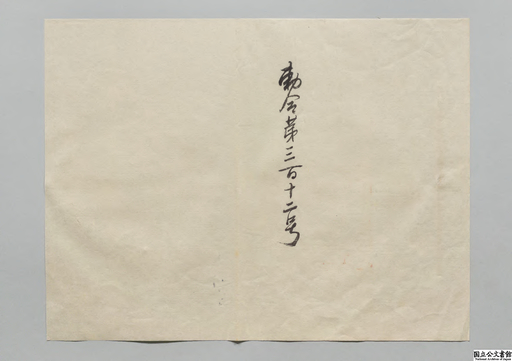 勅令第三百十二号
国立公文書館
National Archives of Japan